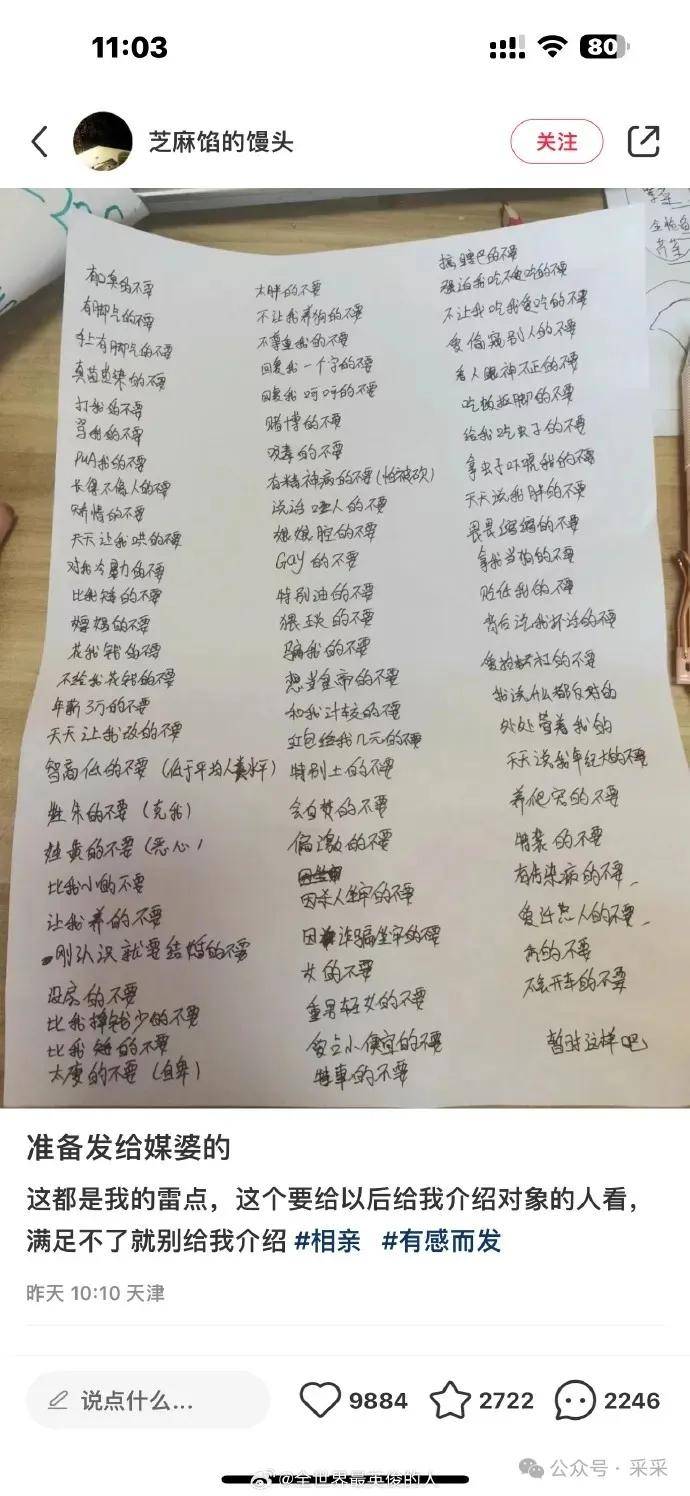 11:03
80
芝麻馅的馒头
关注
有口臭的不要
有脚气的不要
手上有脚气的不要
真菌感染的不要
打我的不要
骂我的不要
PUA我的不要
长得不像人的不要
矫情的不要
天天让我哄的不要
对我冷暴力的不要
比我矮的不要
花我钱的不要
不给我花钱的不要
年薪3万的不要
天天让我改的不要
智商低的不要(低于平均人类水平)
姓朱的不要(克我)
姓黄的不要(恶心)
比我小的不要
让我养的不要
刚认识就要结婚的不要
没房的不要
比我挣钱少的不要
比我矮的不要
太瘦的不要(自卑)
太胖的不要
不让我养狗的不要
不尊重我的不要
回复我一个字的不要
回复我呵呵的不要
赌博的不要
吸毒的不要
有精神病的不要(怕被砍)
说话哑人的不要
娘娘腔的不要
Gay的不要
特别油的不要
猥琐的不要
骗我的不要
想当皇帝的不要
和我计较的不要
红包给我几元的不要
特别土的不要
会自焚的不要
偏激的不要
因杀人坐牢的不要
因诈骗坐牢的不要
女的不要
重男轻女的不要
爱占小便宜的不要
抠嘴巴的不要
强迫我吃不爱吃的不要
不让我吃我爱吃的不要
爱偷窥别人的不要
看人眼神不正的不要
吃饭抠脚的不要
给我吃虫子的不要
拿虫子吓唬我的不要
天天说我胖的不要
畏畏缩缩的不要
拿我当狗的不要
贬低我的不要
背后说我坏话的不要
我说什么都反对的
处处管着我的
天天说我年纪大的不要
养爬宠的不要
有传染病的不要
秃的不要
不会开车的不要
暂时这样吧
准备发给媒婆的
这都是我的雷点，这个要给以后给我介绍对象的人看，
满足不了就别给我介绍 #相亲 #有感而发
昨天 10:10 天津
说点什么...
9884
2722
2246
@全世界最英俊的人
公众号·采采